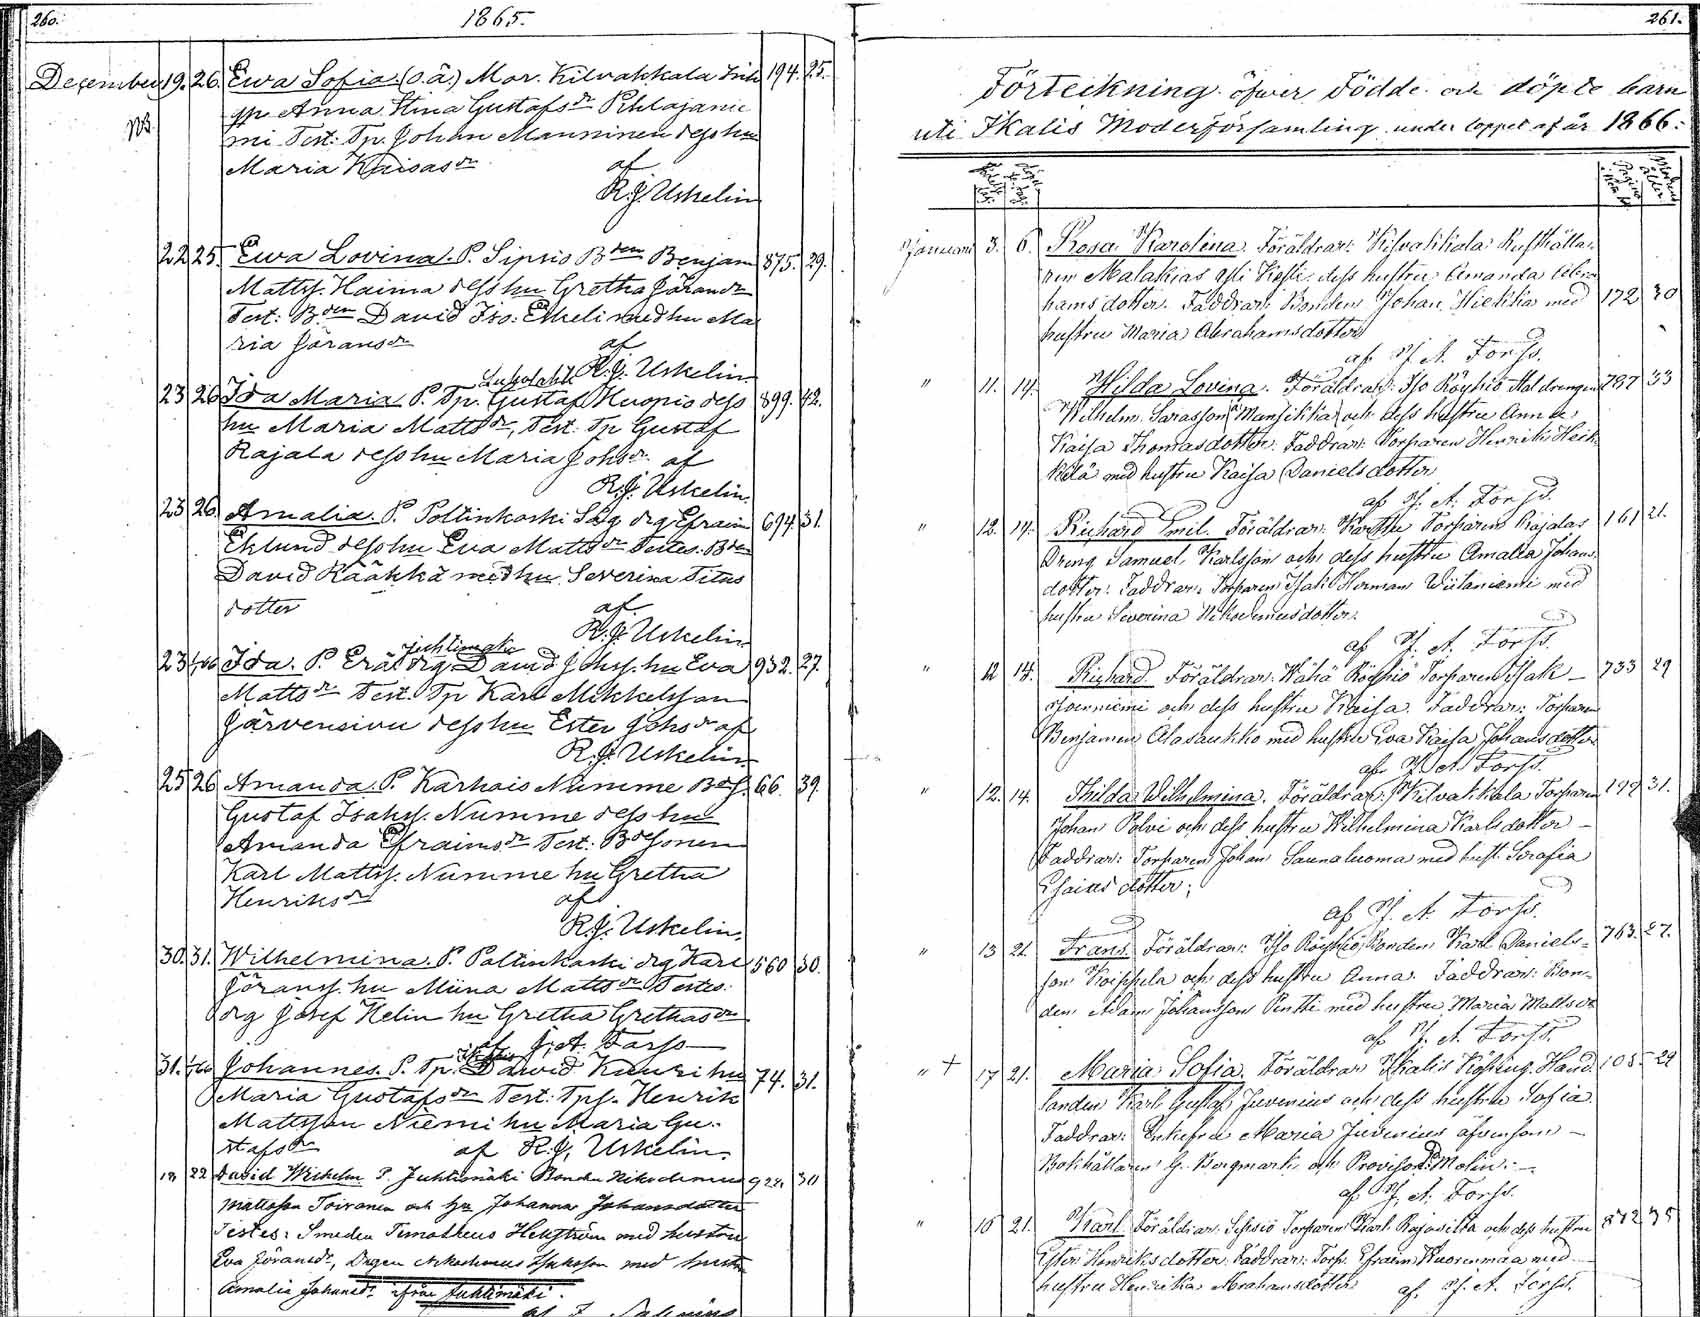 260.
1865.
December 19. 26. Ewa Sofia. (o.ä.) Mor. Kilvakkala 194. 25.
Anna Stina Gustafsdr Pihlajanie
mi Test: Tp. Johan Manninen dess hu
Maria Kaisasdr af
R.J. Uskelin
22 25. Ewa Lovina. P. Sipsiö Bden Benjam 875. 29.
Matts. Haima dess hu Gretha Göransdr
Test: Bden David Iso: Eskeli med hu Ma
ria Göransdr af
R.J. Uskelin.
23 26 Ida Maria P. Tp. Gustaf Kuopio dess 899. 42.
hu Maria Mattsdr, Test. Tp Gustaf
Rajala dess hu Maria Johsdr. af
R.J. Uskelin.
23 26. Amalia. P. Poltinkoski drg Efraim 694. 31.
Eklund dess hu Eva Mattsdr Testes. Bden
David Rääkkä med hu. Severina Titus
dotter af.
R.J. Uskelin.
23 1/66 Ida. P. drg David Johss. hu Eva 932. 27.
Mattsdr Test. Tp Karl Mikkelsson
Järvensivu dess hu Ester Johsdr af
R.J. Uskelin.
25 26 Amanda. P. Karhois Numme 66. 39.
Gustaf Isakss. Numme dess hu
Amanda Efraimsdr Test: Bdesonen
Karl Mattss. Numme hu Gretha
Henriksdr af
R.J. Uskelin.
30. 31. Wilhelmina. P. Poltinkoski drg Karl 560 30.
Göranss. hu Miina Mattsdr Testes:
drg Josef Helin hu Gretha Grethasdr
af J. A. Forss
31. 1/66 Johannes. P. Tp. David Kauri hu 74. 31.
Maria Gustafsdr Test: Tps. Henrik
Mattsson Niemi hu Maria Gu-
stafsdr af R.J. Uskelin.
18 22 David Wilhelm P. Juhtimäki Bonden Nikodemus 924. 30
Mattsson Toivonen och hu Johanna Johansdotter
Testes: Smeden Timotheus Hellström med hustru
Eva Göransdr, Drgen Nikodemus Isaksson med hustru
Amalia Johansdr ifrån Juhtimäki.
261.
Förteckning öfwer Födde och döpte barn
uti Ikalis Moderförsamling under loppet af år 1866:
Januari 3. 6. Rosa Karolina. Föräldrar: Kilvakkala Rusthålla-
ren Malakias dess hustru Amanda Abra
hamsdotter. Faddrar: Bonden Johan Hiekka med 172 30
hustru Maria Abrahamsdotter
af J. A. Forss.
" 11. 14. Hilda Lovina. Föräldrar: Iso Röyhiö Staldrengen 787 33
Wilhelm Sarasson Mansikka och dess hustru Anna
Kaisa Thomasdotter. Faddrar: Torparen Henrik Heik
kilä med hustru Kaisa Danielsdotter
af J. A. Forss.
" 12. 14. Richard Emil. Föräldrar: Torparen Rajalas 161 21.
Dreng Samuel Karlsson och dess hustru Amalia Johans
dotter. Faddrar: Torparen Isak Herman Wiitaniemi med
hustru Severina Nikodemusdotter.
af J. A. Forss.
" 12 14. Richard Föräldrar: Wähä Röyhiö Torparen Isak 733 29
och dess hustru Kaisa. Faddrar: Torparen
Benjamin Alasaukko med hustru Eva Kaisa Johansdotter
af J. A. Forss.
" 12. 14. Hilda Wilhelmina. Föräldrar: Kilvakkala Torparen 199 31.
Johan Polvi och dess hustru Wilhelmina Karlsdotter
Faddrar: Torparen Johan Saunaluoma med hust. Serafia
Esaiasdotter;
af J. A. Forss.
" 13 21. Frans. Föräldrar: Iso Röyhiö Bonden Karl Daniels- 763. 27.
son Koippila och dess hustru Anna. Faddrar: Bon-
den Adam Johansson Pentti med hustru Maria Mattsdr
af J. A. Forss.
" + 17 21. Maria Sofia. Föräldrar Ikalis Köping Hand 105 29
landen Karl Gustaf Juvenius och dess hustru Sofia.
Faddrar: Enkefru Maria Juvenius äfvensom
Bokhållaren G. Bergmark och Provisor Molin.
af J. A. Forss.
" 15 21. Karl Föräldrar: Sipsiö Torparen Karl Rajasilta och dess hustru 872 35
Ester Henriksdotter. Faddrar: Torp. Efraim Kuorenmaa med
hustru Henrika Abrahamsdotter af J. A. Forss.